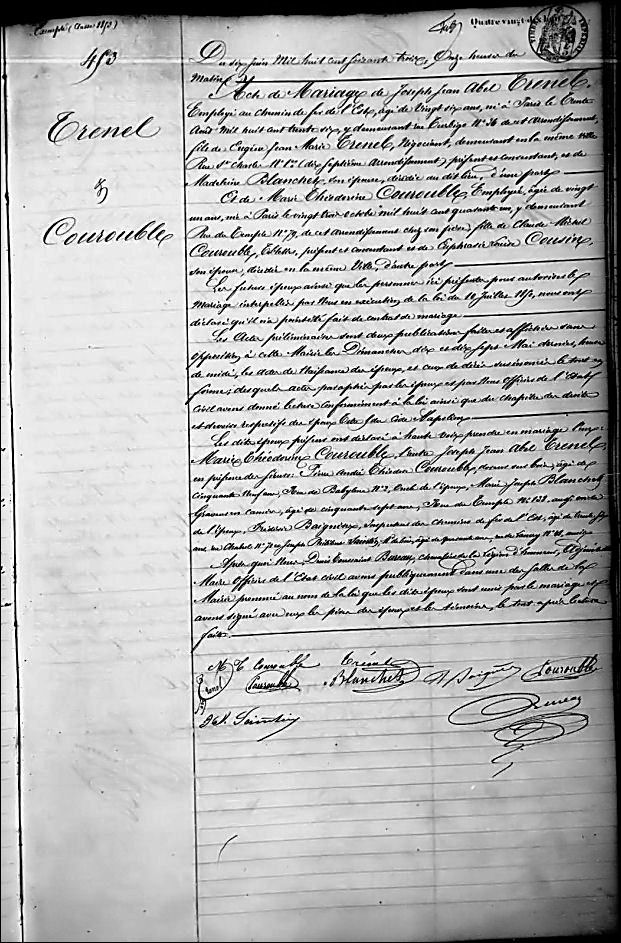 Exempté (Classe 1852)
453
Trenel
&
Courouble
Quatre vingt dix
Du six Juin Mil huit cent soixante trois, Onze heures du
Matin, Acte de Mariage de Joseph Jean Abel Trenel,
Employé au Chemin de fer de l'Est, âgé de vingt six ans, né à Paris le trente
Août Mil huit cent trente six, y demeurant rue Turbigo No 36 de cet arrondissement,
fils de Eugène Jean Marie Trenel, Négociant, demeurant en la même Ville
Rue St Charles No 1er (dix septième arrondissement) présent et consentant, et de
Madeleine Blanchet son épouse, décédée au dit lieu, d'une part.
Et de Marie Théodorine Courouble, Employée, âgée de vingt
un ans, née à Paris le vingt trois octobre mil huit cent quarante un, y demeurant
Rue du Temple No 79, de cet Arrondissement chez son père, fille de Claude Michel
Courouble, présent et consentant et de Euphrasie Louise Cousin,
son épouse, décédée en la même Ville, d'autre part.
Les futurs époux ainsi que les personnes ici présentes pour autoriser le
Mariage interpellés par Nous en exécution de la loi du 10 Juillet 1850, nous ont
déclaré qu'il n'a point été fait de contrat de mariage
Les Actes préliminaires sont deux publications faites et affichées sans
opposition à cette Mairie les Dimanches dix et dix sept Mai derniers, heure
de midi, les actes de Naissance des époux, et ceux de décès de leurs mères le tout en
forme; desquels actes paraphés par les époux et par Nous Officier de l'Etat
civil avons donné lecture conformément à la loi ainsi que du chapitre des droits
et devoirs respectifs des époux Code Napoléon
Les dits époux présents ont déclaré à haute voix prendre en mariage l'une
Marie Théodorine Courouble, l'autre Joseph Jean Abel Trenel
en présence de Sieurs: Pierre André Théodore Courouble, âgé de
cinquante neuf ans, Rue de Babylone No 2, Oncle de l'épouse, Marie Joseph Blanchet
Graveur en camées, âgé de cinquante sept ans, Rue du Temple No 138, aïeul
de l'époux, Frédéric Baignères, Inspecteur des chemins de fer de l'Est, âgé de trente
ans, rue Chabrol No 70 Joseph âgé de quarante ans, rue de Nancy No
Après quoi Nous, Denis Toussaint Bureau, chevalier de la Légion d'honneur, Adjoint au
Maire Officier de l'Etat civil avons publiquement dans une des salles de la
Mairie prononcé au nom de la loi que les dits époux sont unis par le mariage et
avons signé avec eux les pères des époux et les témoins, le tout après lecture
faite.
M. T. Courouble Trenel Courouble
Trenel Courouble Blanchet
Bureau